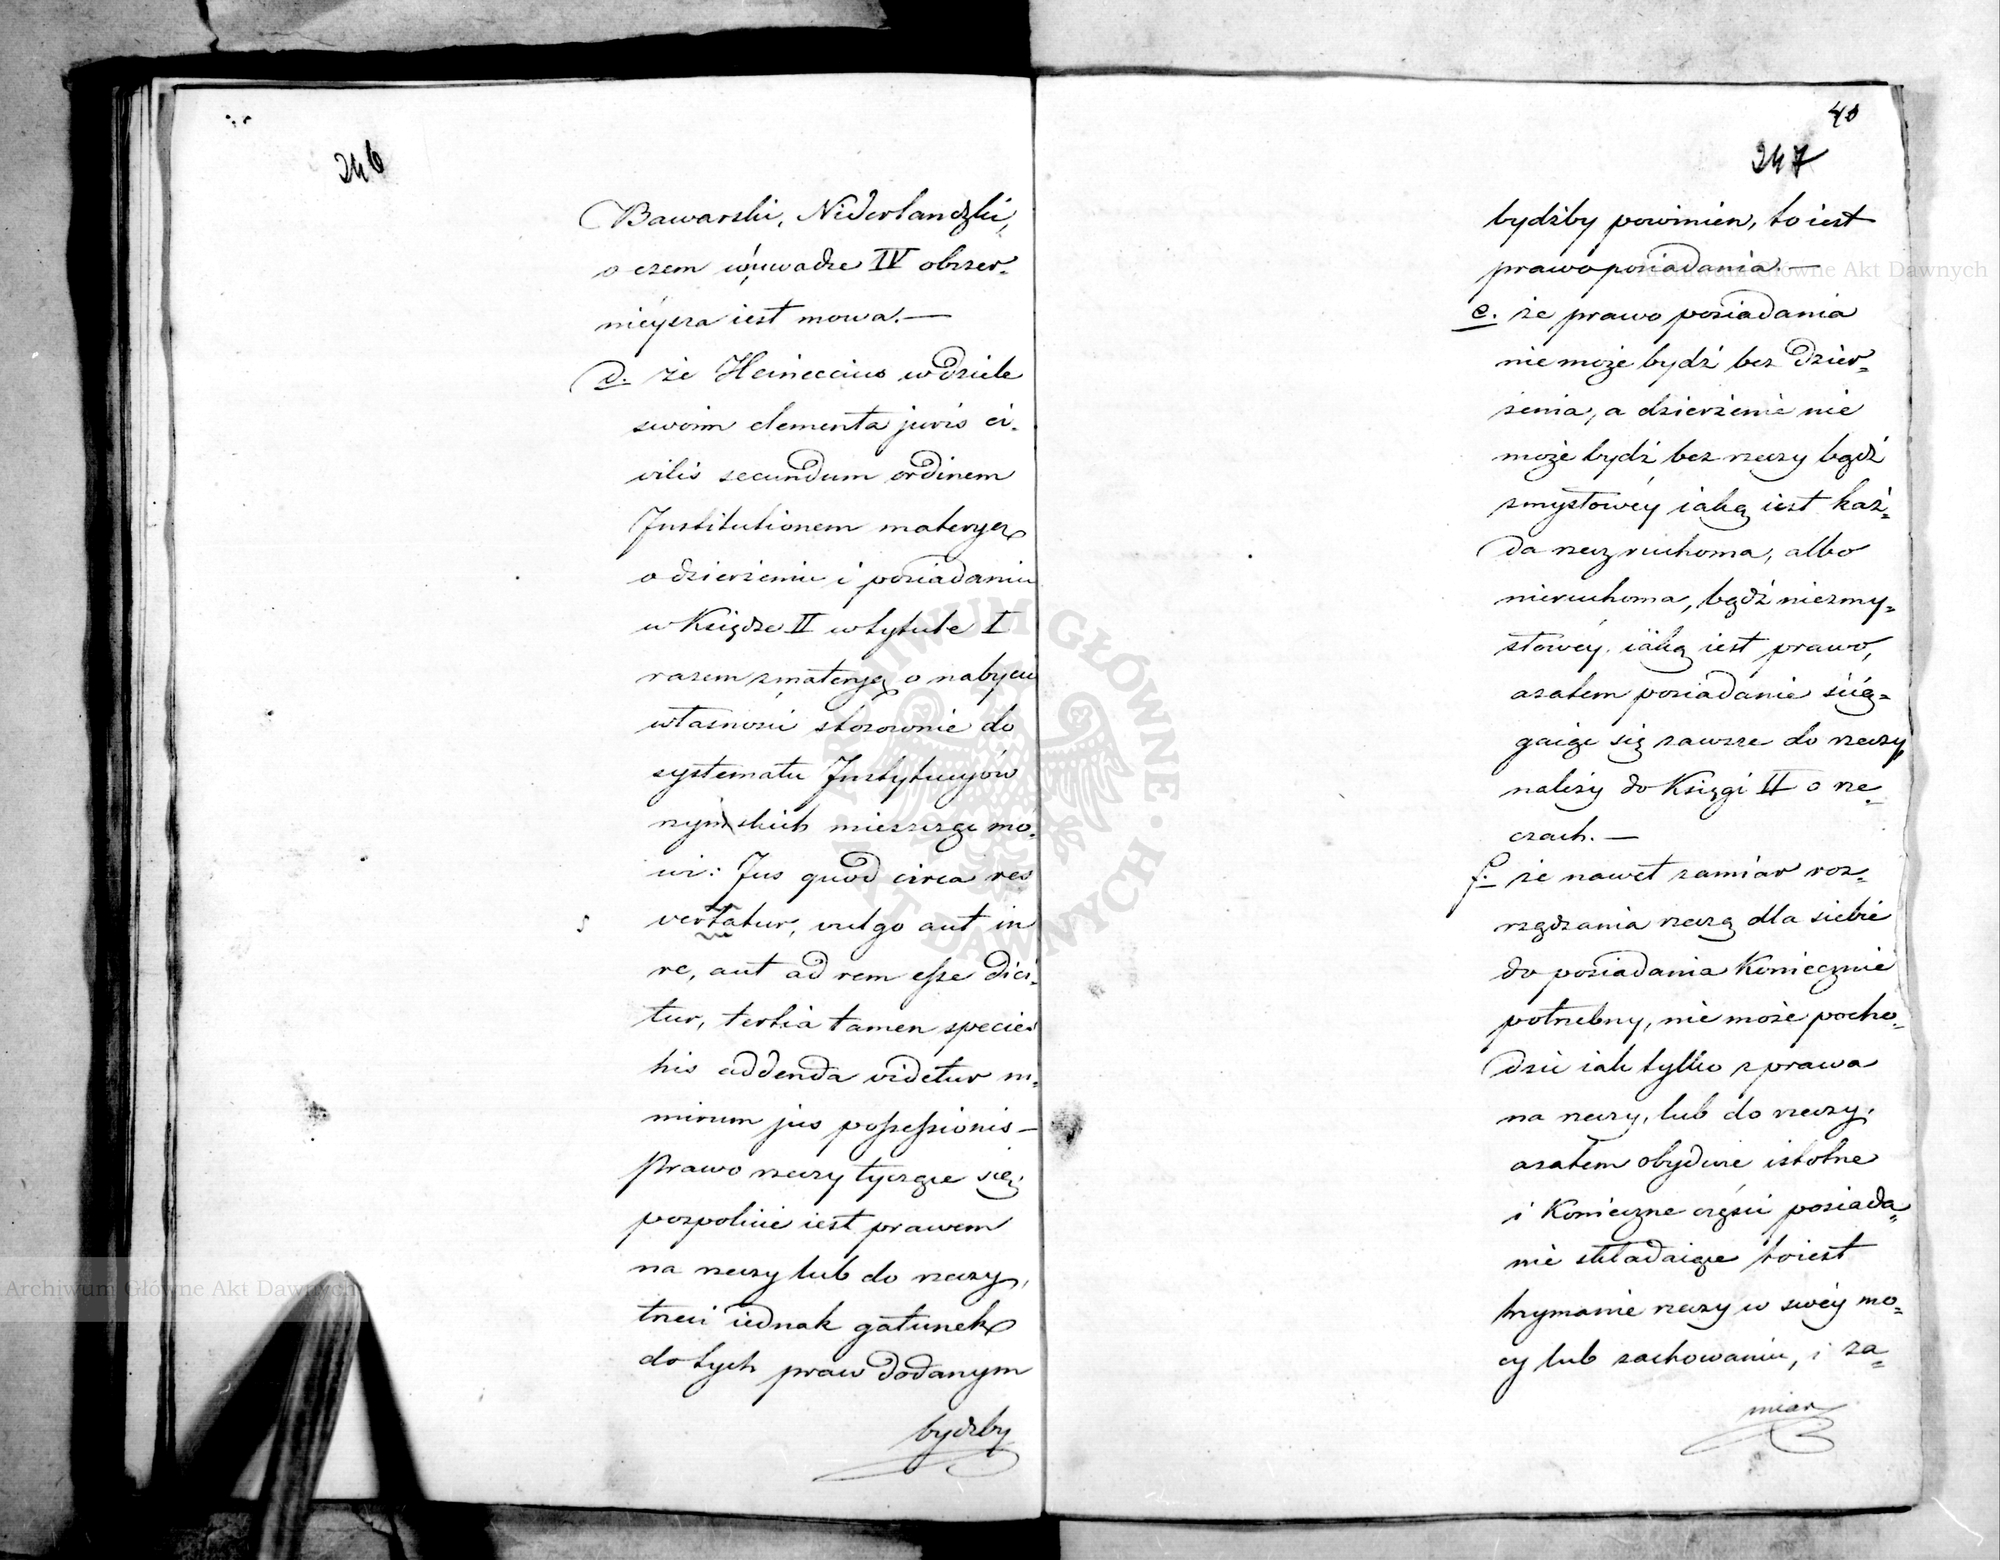 246
Bawarski, Niderlandzki,
o czem w uwadze IV obszer-
nieysza iest mowa.—
d. że Heineccius w dziele
swoim elementa juris ci-
vilis secundum ordinem
Institutionem materyą
o dzierżeniu i posiadaniu
w Księdze II w tytule I
razem z materyą o nabyciu
własności stosownie do
systematu Instytucyów
rzymskich mieszcząc mo-
wi: Jus quod circa res
versatur, vulgo aut in
re, aut ad rem esse dici-
tur, tertia tamen species
his addenda videtur ni-
mirum jus possessionis —
prawo rzeczy tyczące się
pospolicie iest prawem
na rzeczy lub do rzeczy,
trzeci iednak gatunek
do tych praw dodanym
bydźby
40
247
bydźby powinien, to iest
prawo posiadania.—
e. że prawo posiadania
nie może bydź bez dzier-
żenia, a dzierżenie nie
może bydź bez rzeczy bądź
zmysłowéy iaką iest każ-
da rzecz ruchoma, albo
nieruchoma, bądź niezmy-
słowéy iaką iest prawo,
a zatem posiadanie ścią-
gaiąc się zawsze do rzeczy
należy do Księgi II o rze-
czach.—
f. że nawet zamiar roz-
rządzania rzeczą dla siebie
do posiadania koniecznie
potrzebny, nie może pocho-
dzić iak tylko z prawa
na rzeczy, lub do rzeczy,
a zatem obydwie istotne
i konieczne części posiada-
nie składaiące to iest
trzymanie rzeczy w swéy mo-
cy lub zachowaniu, i za-
miar
Archiwum Główne Akt Dawnych
Archiwum Główne Akt Dawnych
ARCHIWUM GŁÓWNE AKT DAWNYCH